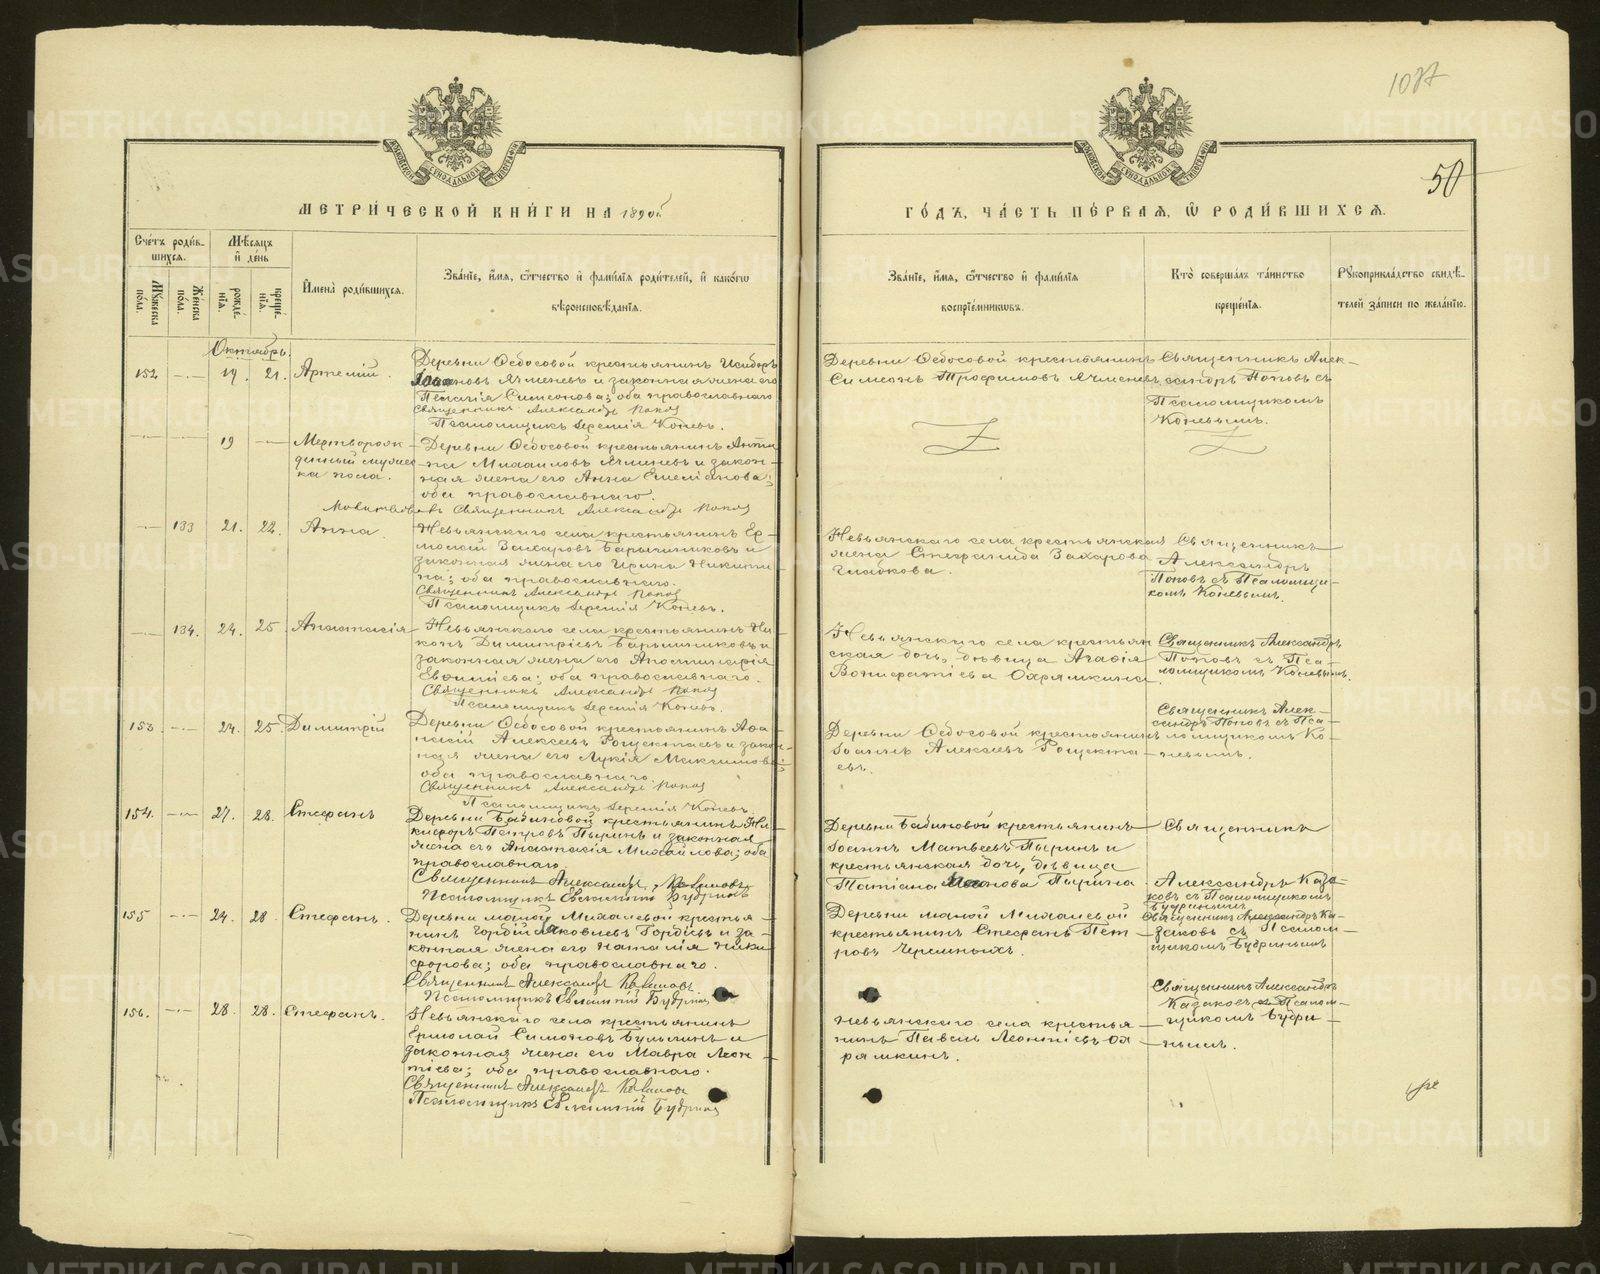 1077
50
МЕТРИ́ЧЕСКОЙ КНИ́ГИ НА 1890й
ГО́ДЪ, ЧА́СТЬ ПЕ́РВАЯ, Ѡ РОДИ́ВШИХСѦ.
Сче́тъ роди́в-
шихсѧ.
Мꙋ́жеска по́ла.
Же́нска по́ла.
Мѣ́сяцъ
и҆ де́нь
рожде́-
нїѧ.
креще́-
нїѧ.
И҆мена̀ роди́вшихсѧ.
Зва́нїе, и҆́мѧ, ѻ҆́тчество и҆ фами́лїѧ роди́телей, и҆ како́гѡ
вѣроисповѣ́данїѧ.
Зва́нїе, и҆́мѧ, ѻ҆́тчество и҆ фами́лїѧ
воспрїе́мникѡвъ.
Кто̀ соверша́лъ та́инство
креще́нїѧ.
Рꙋкоприкла́дство свидѣ́-
телей за́писи по жела́нїю.
Октябрь.
152 — 19. 21. Артемій.
Деревни Ѳедосовой крестьянинъ Исидоръ
Іоанновъ Ячменевъ и законная жена его
Пелагія Симеонова; оба православнаго
Священникъ Александръ Поповъ
Псаломщикъ Іеремія Коневъ.
Деревни Ѳедосовой крестьянинъ
Симеонъ Трофимовъ Ячменевъ
Священникъ Алек-
сандръ Поповъ съ
Псаломщикомъ
Коневымъ.
— — 19 — Мертворож-
денный мужес-
ка пола.
Деревни Ѳедосовой крестьянинъ Анти-
па Михаиловъ Ячменевъ и закон-
ная жена его Анна Емеліанова;
оба православнаго.
Молитвовалъ Священникъ Александръ Поповъ
— 133 21. 22. Анна.
Невьянскаго села крестьянинъ Ер-
молай Захаровъ Барышниковъ и
законная жена его Ирина Никити-
на; оба православнаго.
Священникъ Александръ Поповъ
Псаломщикъ Іеремія Коневъ.
Невьянскаго села крестьянская
жена Стефанида Захарова
Глабкова.
Священникъ
Александръ
Поповъ съ Псаломщи-
комъ Коневымъ.
— 134. 24. 25 Анастасія
Невьянскаго села крестьянинъ Ни-
конъ Димитріевъ Барышниковъ и
законная жена его Анастасія
Евѳиміева; оба православнаго.
Священникъ Александръ Поповъ
Псаломщикъ Іеремія Коневъ.
Невьянскаго села крестьян-
ская дочь, дѣвица Агаѳія
Вонифатіева Охрямкина.
Священникъ Александръ
Поповъ съ Пса-
ломщикомъ Коневымъ.
153. — 24. 25 Димитрій
Деревни Ѳедосовой крестьянинъ Аѳа-
насій Алексѣевъ Рощектаевъ и закон-
ная жена его Лукія Максимова;
оба православнаго.
Священникъ Александръ Поповъ
Псаломщикъ Іеремія Коневъ.
Деревни Ѳедосовой крестьянинъ
Іоаннъ Алексѣевъ Рощекта-
евъ.
Священникъ Алек-
сандръ Поповъ съ Пса-
ломщикомъ Ко-
невымъ.
154. — 27. 28. Стефанъ
Деревни Бабиновой крестьянинъ Ни-
кифоръ Петровъ Пыринъ и законная
жена его Анастасія Михаилова; оба
православнаго.
Священникъ Александръ Казаковъ
Псаломщикъ Евлампій Будринъ
Деревни Бабиновой крестьянинъ
Іоаннъ Матвеевъ Пыринъ и
крестьянская дочь, дѣвица
Татіана Иванова Пырина.
Священникъ
Александръ Каза-
ковъ съ Псаломщикомъ
Будринымъ
155 — 24. 28 Стефанъ.
Деревни малой Михалевой крестья-
нинъ Гордій Яковлевъ Гордіевъ и за-
конная жена его Наталія Ники-
форова; оба православнаго.
Священникъ Александръ Казаковъ
Псаломщикъ Евлампій Будринъ
Деревни малой Михалевой
крестьянинъ Стефанъ Пет-
ровъ Черемныхъ.
Священникъ Александръ Ка-
заковъ съ Псалом-
щикомъ Будринымъ
156. — 28. 28. Стефанъ.
Невьянскаго села крестьянинъ
Ермолай Симоновъ Булыгинъ и
законная жена его Мавра Леон-
тіева; оба православнаго.
Священникъ Александръ Казаковъ
Псаломщикъ Евлампій Будринъ
Невьянскаго села крестья-
нинъ Павелъ Леонтіевъ Ох-
рямкинъ.
Священникъ Александръ
Казаковъ съ Псалом-
щикомъ Будри-
нымъ.
METRIKI.GASO-URAL.RU